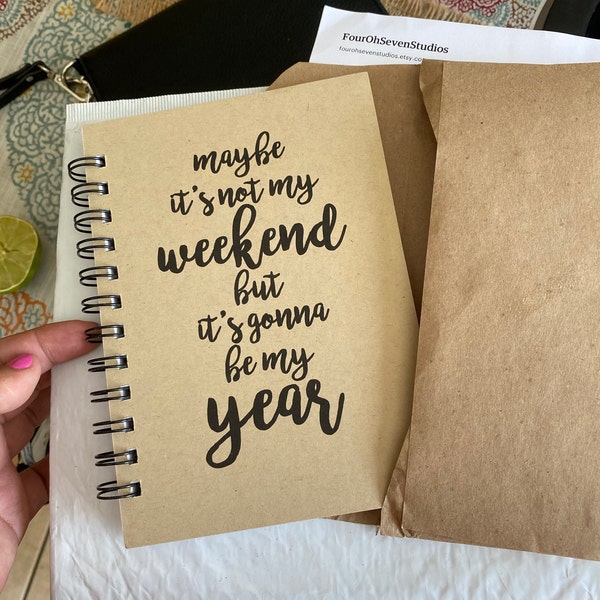 FourOhSevenStudios
fourohsevenstudios.etsy.com
maybe
it's not my
weekend
but
it's gonna
be my
year